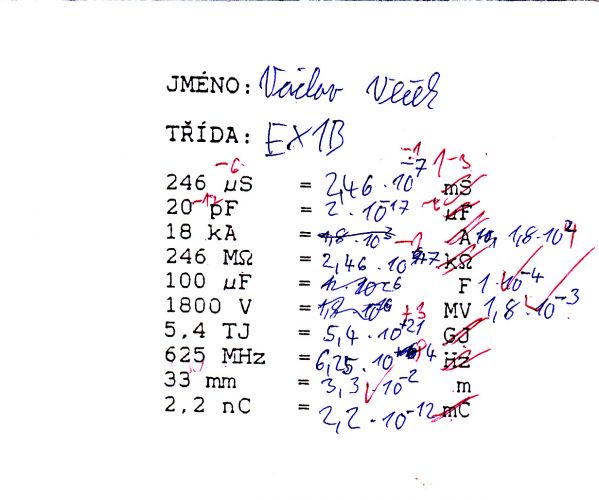 JMÉNO: Václav
TŘÍDA: EX1B
246 µS = 2,46 · 10⁻⁷ mS
20 pF = 2 · 10⁻¹⁷ µF
18 kA = 1,8 · 10³ A 1,8 · 10⁴
246 MΩ = 2,46 · 10 kΩ
100 µF = F 1 · 10⁻⁴
1800 V = MV 1,8 · 10⁻³
5,4 TJ = 5,4 · 10²¹ GJ
625 MHz = 6,25 · 10 Hz
33 mm = 3,3 · 10⁻² m
2,2 nC = 2,2 · 10⁻¹² mC